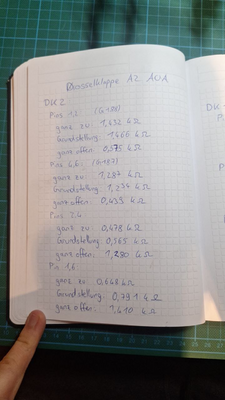 Drosselklappe A2 AUA
DK 2
Pins 1,2 (G188)
ganz zu: 1,432 kΩ
Grundstellung: 1,466 kΩ
ganz offen: 0,575 kΩ
Pins 4,6: (G187)
ganz zu: 1,287 kΩ
Grundstellung: 1,234 kΩ
ganz offen: 0,435 kΩ
Pins 2,4
ganz zu: 0,478 kΩ
Grundstellung: 0,565 kΩ
ganz offen: 1,280 kΩ
Pin 1,6
ganz zu: 0,648 kΩ
Grundstellung: 0,791 kΩ
ganz offen: 1,410 kΩ